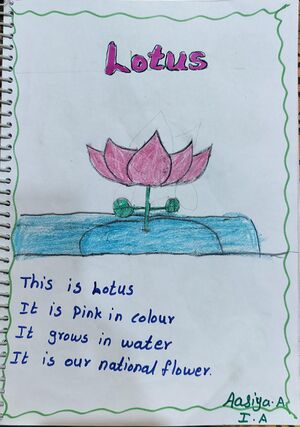 Lotus
This is Lotus
It is Pink in colour
It grows in water
It is our national flower.
Aasiya.A
I.A